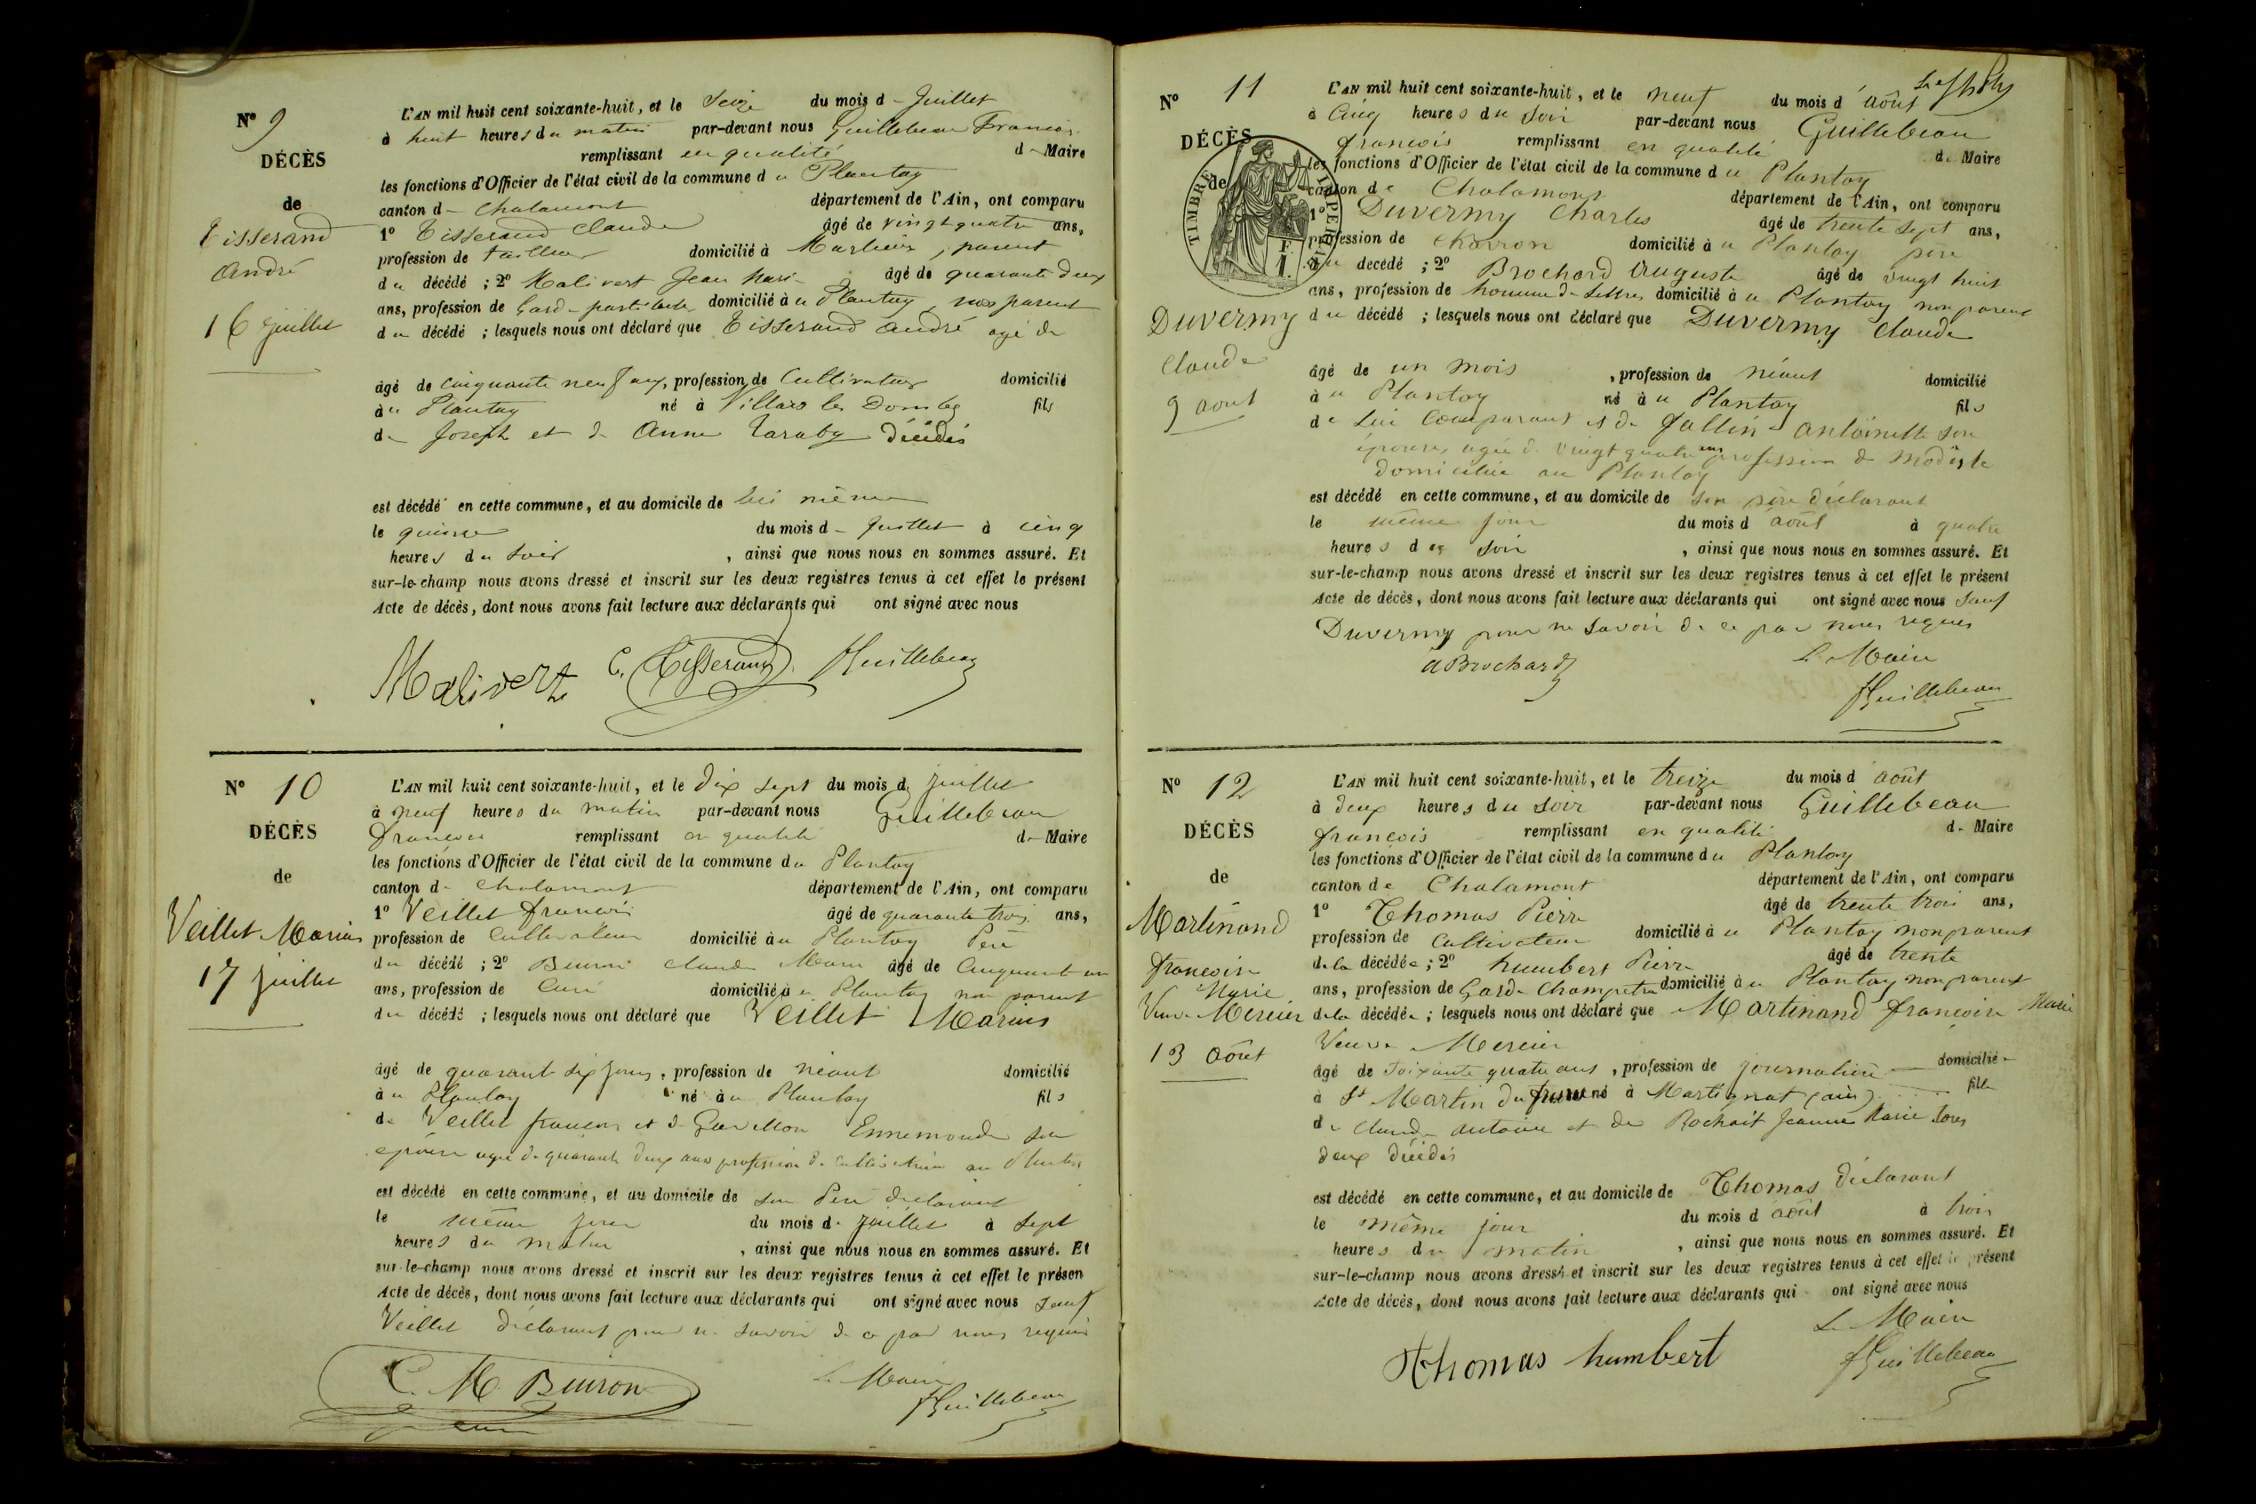 N° 9
DÉCÈS
de
Tisserand
André
16 juillet
L'AN mil huit cent soixante-huit, et le Seize du mois d- Juillet
à huit heures du matin par-devant nous Guillebeau François
remplissant en qualité de Maire
les fonctions d'Officier de l'état civil de la commune du Plantay
canton d- Chalamont département de l'Ain, ont comparu
1° Tisserand Claude âgé de vingt quatre ans,
profession de tailleur domicilié à Marlieux, parent
du décédé ; 2° Malivert Jean Marie âgé de quarante deux
ans, profession de Garde particulier domicilié au Plantay, non parent
du décédé ; lesquels nous ont déclaré que Tisserand André agé de
âgé de cinquante neuf ans, profession de Cultivateur domicilié
au Plantay né à Villars les Dombes fils
de Joseph et de Anne Taraby décédés
est décédé en cette commune, et au domicile de lui même
le quinze du mois d- Juillet à cinq
heures du soir , ainsi que nous nous en sommes assuré. Et
sur-le-champ nous avons dressé et inscrit sur les deux registres tenus à cet effet le présent
Acte de décès, dont nous avons fait lecture aux déclarants qui ont signé avec nous
Malivert C. Tisserand fGuillebeau
N° 10
DÉCÈS
de
Veillet Marius
17 juillet
L'AN mil huit cent soixante-huit, et le dix sept du mois d juillet
à neuf heures du matin par-devant nous Guillebeau
François remplissant en qualité de Maire
les fonctions d'Officier de l'état civil de la commune du Plantay
canton de Chalamont département de l'Ain, ont comparu
1° Veillet François âgé de quarante trois ans,
profession de Cultivateur domicilié au Plantay Père
du décédé ; 2° Buiron Claude Marie âgé de Cinquante un
ans, profession de Curé domicilié au Plantay non parent
du décédé ; lesquels nous ont déclaré que Veillet Marius
âgé de quarante six jours, profession de néant domicilié
au Plantay né au Plantay fils
de Veillet françois et de Ennemonde son
epouse agée de quarante deux ans profession de cultivatrice au Plantay
est décédé en cette commune, et au domicile de son Père déclarant
le même jour du mois de juillet à sept
heures du matin , ainsi que nous nous en sommes assuré. Et
sur-le-champ nous avons dressé et inscrit sur les deux registres tenus à cet effet le présen
Acte de décès, dont nous avons fait lecture aux déclarants qui ont signé avec nous sauf
Veillet déclarant pour ne savoir de ce par nous requis
C. M Buiron Le Maire
fGuillebeau
N° 11
DÉCÈS
de
TIMBRE IMPERIAL
F.
1.
Duvermy
Claude
9 aout
L'AN mil huit cent soixante-huit, et le neuf du mois d'août
à Cinq heures du soir par-devant nous Guillebeau
françois remplissant en qualité de Maire
les fonctions d'Officier de l'état civil de la commune du Plantay
canton de Chalamont département de l'Ain, ont comparu
1° Duvermy Charles âgé de trente sept ans,
profession de Charron domicilié au Plantay père
du decédé ; 2° Brochard Auguste âgé de vingt huit
ans, profession de homme de lettres domicilié au Plantay non parent
du décédé ; lesquels nous ont déclaré que Duvermy Claude
âgé de un mois , profession de néant domicilié
au Plantay né au Plantay fils
de lui Comparant et de Jallin Antoinette son
épouse, agée de vingt quatre ans profession de Modiste
domiciliée au Plantay
est décédé en cette commune, et au domicile de son père déclarant
le même jour du mois d'août à quatre
heures du soir , ainsi que nous nous en sommes assuré. Et
sur-le-champ nous avons dressé et inscrit sur les deux registres tenus à cet effet le présent
Acte de décès, dont nous avons fait lecture aux déclarants qui ont signé avec nous sauf
Duvermy pour ne savoir de ce par nous requis
ABrochard Le Maire
fGuillebeau
N° 12
DÉCÈS
de
Martinand
françoise
Marie
Veuve Mercier
13 août
L'AN mil huit cent soixante-huit, et le treize du mois d'août
à deux heures du soir par-devant nous Guillebeau
françois remplissant en qualité de Maire
les fonctions d'Officier de l'état civil de la commune du Plantay
canton de Chalamont département de l'Ain, ont comparu
1° Thomas Pierre âgé de trente trois ans,
profession de Cultivateur domicilié au Plantay non parent
de la décédée ; 2° humbert Pierre âgé de trente
ans, profession de Garde Champetre domicilié au Plantay non parent
de la décédée ; lesquels nous ont déclaré que Martinand françoise Marie
Veuve Mercier
âgé de soixante quatre ans, profession de journalière domicilié
à St Martin du frene né à Martignat (ain) fille
de Claude antoine et de Rochait Jeanne Marie tous
deux décédés
est décédé en cette commune, et au domicile de Thomas déclarant
le même jour du mois d'août à trois
heures du matin , ainsi que nous nous en sommes assuré. Et
sur-le-champ nous avons dressé et inscrit sur les deux registres tenus à cet effet le présent
Acte de décès, dont nous avons fait lecture aux déclarants qui ont signé avec nous
Le Maire
Thomas humbert fGuillebeau